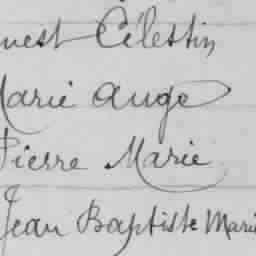 nest Célestin
Marie Ange
Pierre Marie
Jean Baptiste Marie